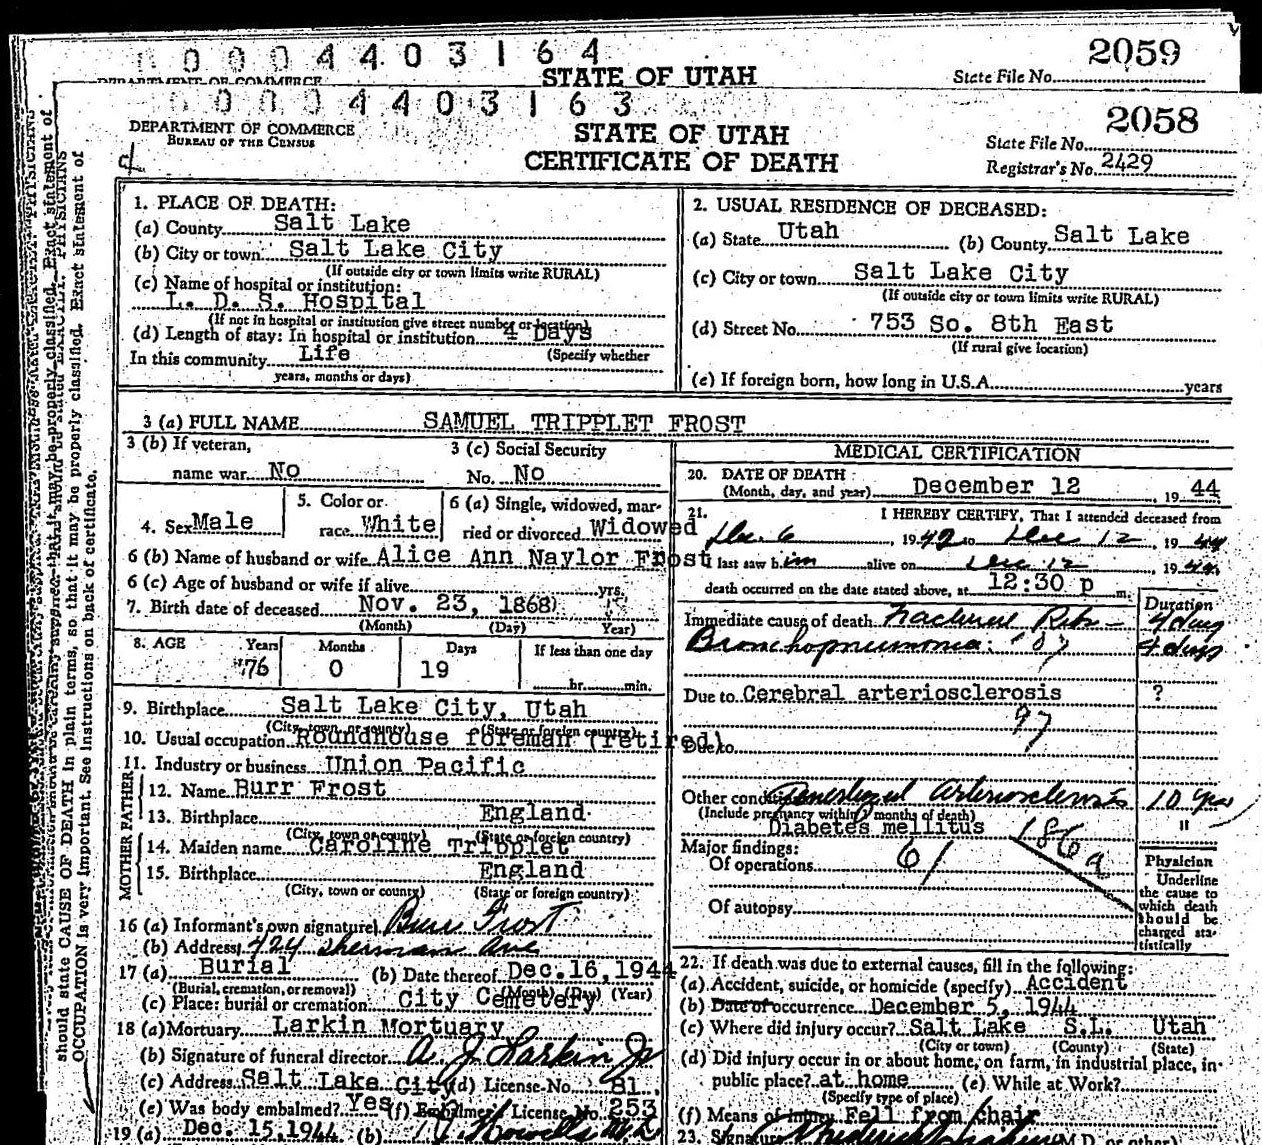 0004403164
2059
DEPARTMENT OF COMMERCE
STATE OF UTAH
State File No.
0004403163
2058
DEPARTMENT OF COMMERCE
BUREAU OF THE CENSUS
STATE OF UTAH
CERTIFICATE OF DEATH
State File No.
Registrar's No. 2429
should state CAUSE OF DEATH in plain terms, so that it may be properly classified. Exact statement of
OCCUPATION is very important. See instructions on back of certificate.
1. PLACE OF DEATH:
(a) County Salt Lake
(b) City or town Salt Lake City
(If outside city or town limits write RURAL)
(c) Name of hospital or institution:
L. D. S. Hospital
(If not in hospital or institution give street number or location)
(d) Length of stay: In hospital or institution 4 Days
In this community Life (Specify whether
years, months or days)
2. USUAL RESIDENCE OF DECEASED:
(a) State Utah (b) County Salt Lake
(c) City or town Salt Lake City
(If outside city or town limits write RURAL)
(d) Street No. 753 So. 8th East
(If rural give location)
(e) If foreign born, how long in U.S.A. years
3 (a) FULL NAME SAMUEL TRIPPLET FROST
3 (b) If veteran,
name war No
3 (c) Social Security
No. No
4. Sex Male
5. Color or
race White
6 (a) Single, widowed, mar-
ried or divorced Widowed
6 (b) Name of husband or wife Alice Ann Naylor Frost
6 (c) Age of husband or wife if alive yrs.
7. Birth date of deceased Nov. 23, 1868
(Month) (Day) Year)
8. AGE Years Months Days If less than one day
76 0 19 hr. min.
9. Birthplace Salt Lake City, Utah
(City, town, or county) (State or foreign country)
10. Usual occupation Roundhouse foreman (retired)
11. Industry or business Union Pacific
FATHER
12. Name Burr Frost
13. Birthplace England
(City, town or county) (State or foreign country)
MOTHER
14. Maiden name Caroline Tripplet
15. Birthplace England
(City, town or county) (State or foreign country)
16 (a) Informant's own signature Burr Frost
(b) Address 724 Sherman Ave
17 (a) Burial (b) Date thereof Dec. 16, 1944
(Burial, cremation, or removal) (Month) (Day) (Year)
(c) Place: burial or cremation City Cemetery
18 (a) Mortuary Larkin Mortuary
(b) Signature of funeral director A. J. Larkin Jr
(c) Address Salt Lake City (d) License No. 81
(e) Was body embalmed? Yes (f) Embalmer's License No. 253
19 (a) Dec. 15, 1944 (b)
MEDICAL CERTIFICATION
20. DATE OF DEATH
(Month, day, and year) December 12 , 19 44
21. I HEREBY CERTIFY, That I attended deceased from
Dec. 6 , 1942 to Dec 12 , 19 44
I last saw him alive on Dec 12 , 19 44
death occurred on the date stated above, at 12:30 p m.
Duration
Immediate cause of death Fractured Ribs - 7 days
Bronchopneumonia 107 4 days
Due to Cerebral arteriosclerosis ?
97
Due to
Other conditions Generalized arteriosclerosis 10 yrs
(Include pregnancy within 3 months of death)
Diabetes mellitus "
186a
Major findings:
Of operations 61
Of autopsy
Physician
Underline
the cause to
which death
should be
charged sta-
tistically
22. If death was due to external causes, fill in the following:
(a) Accident, suicide, or homicide (specify) Accident
(b) Date of occurrence December 5, 1944
(c) Where did injury occur? Salt Lake S.L. Utah
(City or town) (County) (State)
(d) Did injury occur in or about home, on farm, in industrial place, in
public place? at home (e) While at Work?
(Specify type of place)
(f) Means of injury Fell from chair
23. Signature M.D. or other)